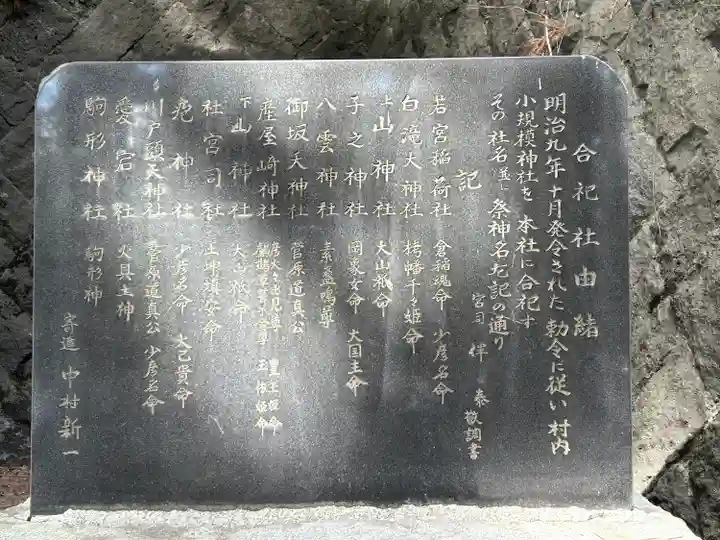 合祀社由緒
一明治九年十月発令された勅令に従い村内
小規模神社を本社に合祀す
その社名並に祭神名左記の通り
宮司 伴 泰 敬調書
記
若宮稲荷社 倉稲魂命 少彦名命
白滝大神社 栲幡千々姫命
上山神社 大山祇命
子之神社 罔象女命 大国主命
八雲神社 素盞嗚尊
御坂天神社 菅原道真公
産屋崎神社 彦火々出見尊 豊玉姫命
玉依姫命
下山神社 大山祇命
社宮司社 埴安命
疱神社 少彦名命 大己貴命
川戸頭天神社 菅原道真公 少彦名命
愛宕社 火具土神
駒形神社 駒形神
寄進 中村新一